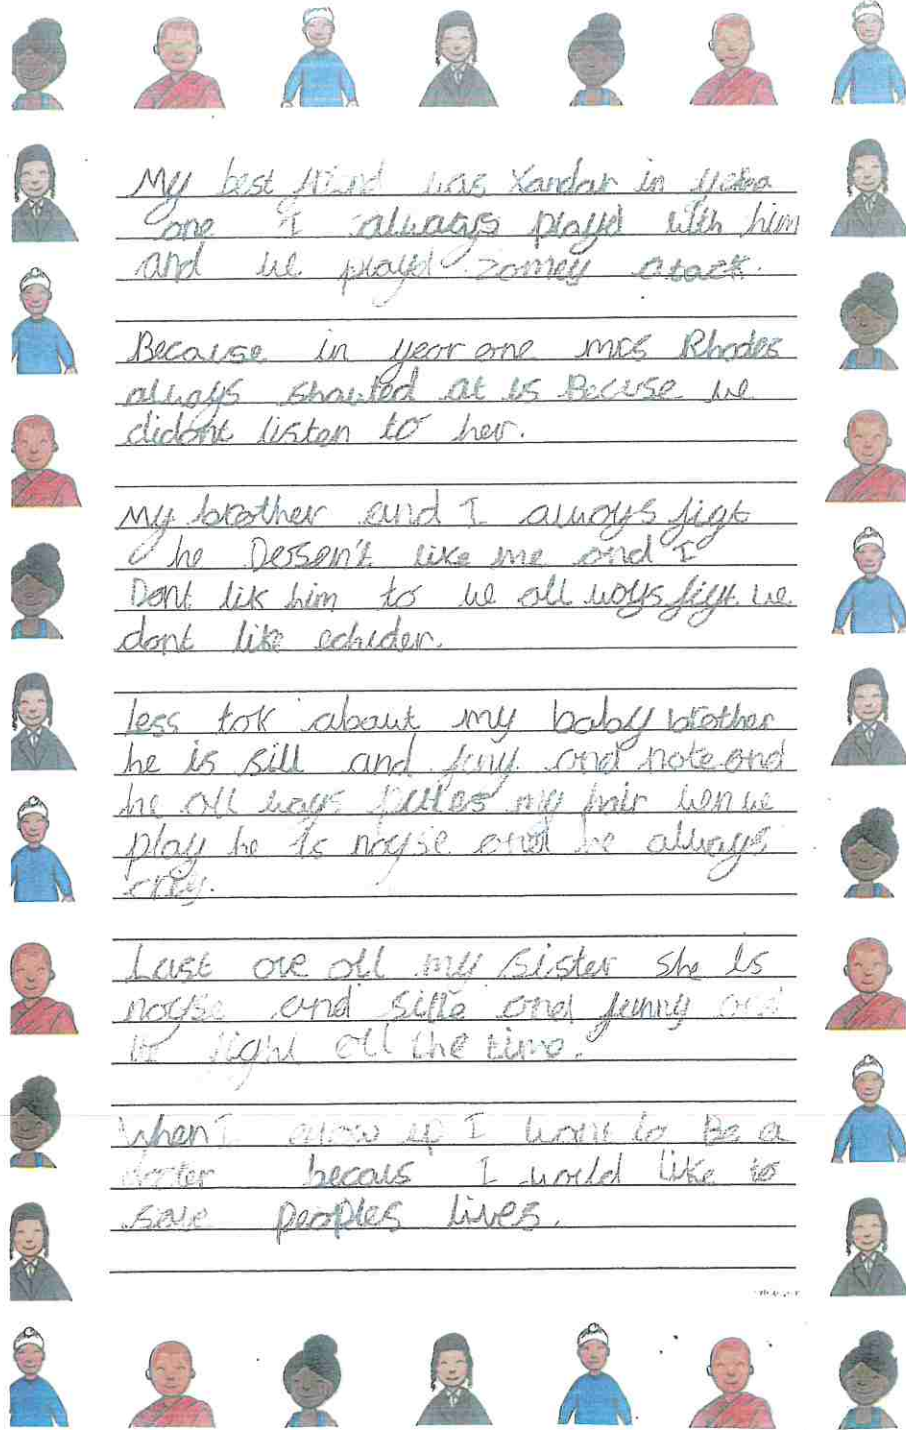 My best friend was Xandar in year
one I always playd with him
and we playd zomey atack.
Because in year one mrs Rhodes
always shouted at us Becuse we
didont listen to her.
My brother and I always figt
he Dersen't like me and I
Dont lik him to we all ways figt we
dont like echuder.
less tok about my baby brother
he is sill and funy and note and
he all ways pulles my hair wen we
play he is noyse and he always
cry.
Last ove all my sister she is
noyse and sille and funny and
we fight all the time.
When I grow up I wont to Be a
docter becaus I world like to
save peoples lives.